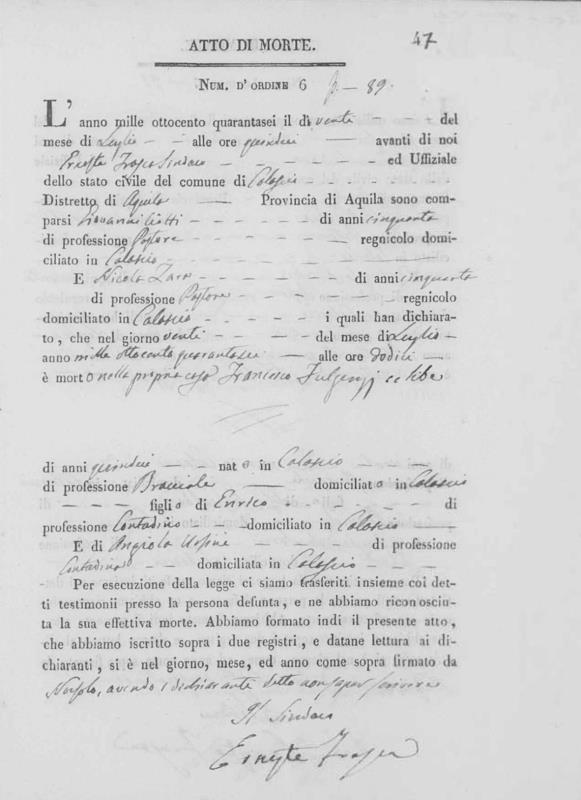 47
ATTO DI MORTE.
NUM. D' ORDINE 6 — 89.
L' anno mille ottocento quarantasei il dì venti — — — del
mese di Luglio — — alle ore quindici — avanti di noi
Sindaco — — — — — — — ed Uffiziale
dello stato civile del comune di Colascio — — — —
Distretto di Aquila — Provincia di Aquila sono com-
parsi Giovanni — — — — — di anni cinquanta
di professione Pastore — — — — — regnicolo domi-
ciliato in Colascio — — — — — — — —
E Nicola — — — — — di anni cinquanta
di professione Pastore — — — — — regnicolo
domiciliato in Colascio — — — — — i quali han dichiara-
to, che nel giorno venti — — — del mese di Luglio —
anno mille ottocento quarantasei — alle ore dodici —
è morto nella propria casa Francesco Fulgenzj celibe
di anni quindici — — nato in Colascio — — — —
di professione Bracciale — domiciliato in Colascio
— — — figlio di Enrico — — — — — — di
professione Contadino — — domiciliato in Colascio —
E di Angiola — — — — di professione
Contadina — — domiciliata in Colascio — — — —
Per esecuzione della legge ci siamo trasferiti insieme coi det-
ti testimonii presso la persona defunta, e ne abbiamo riconosciu-
ta la sua effettiva morte. Abbiamo formato indi il presente atto,
che abbiamo iscritto sopra i due registri, e datane lettura ai di-
chiaranti, si è nel giorno, mese, ed anno come sopra firmato da
Noi solo, avendo i dichiaranti detto non saper scrivere
Il Sindaco